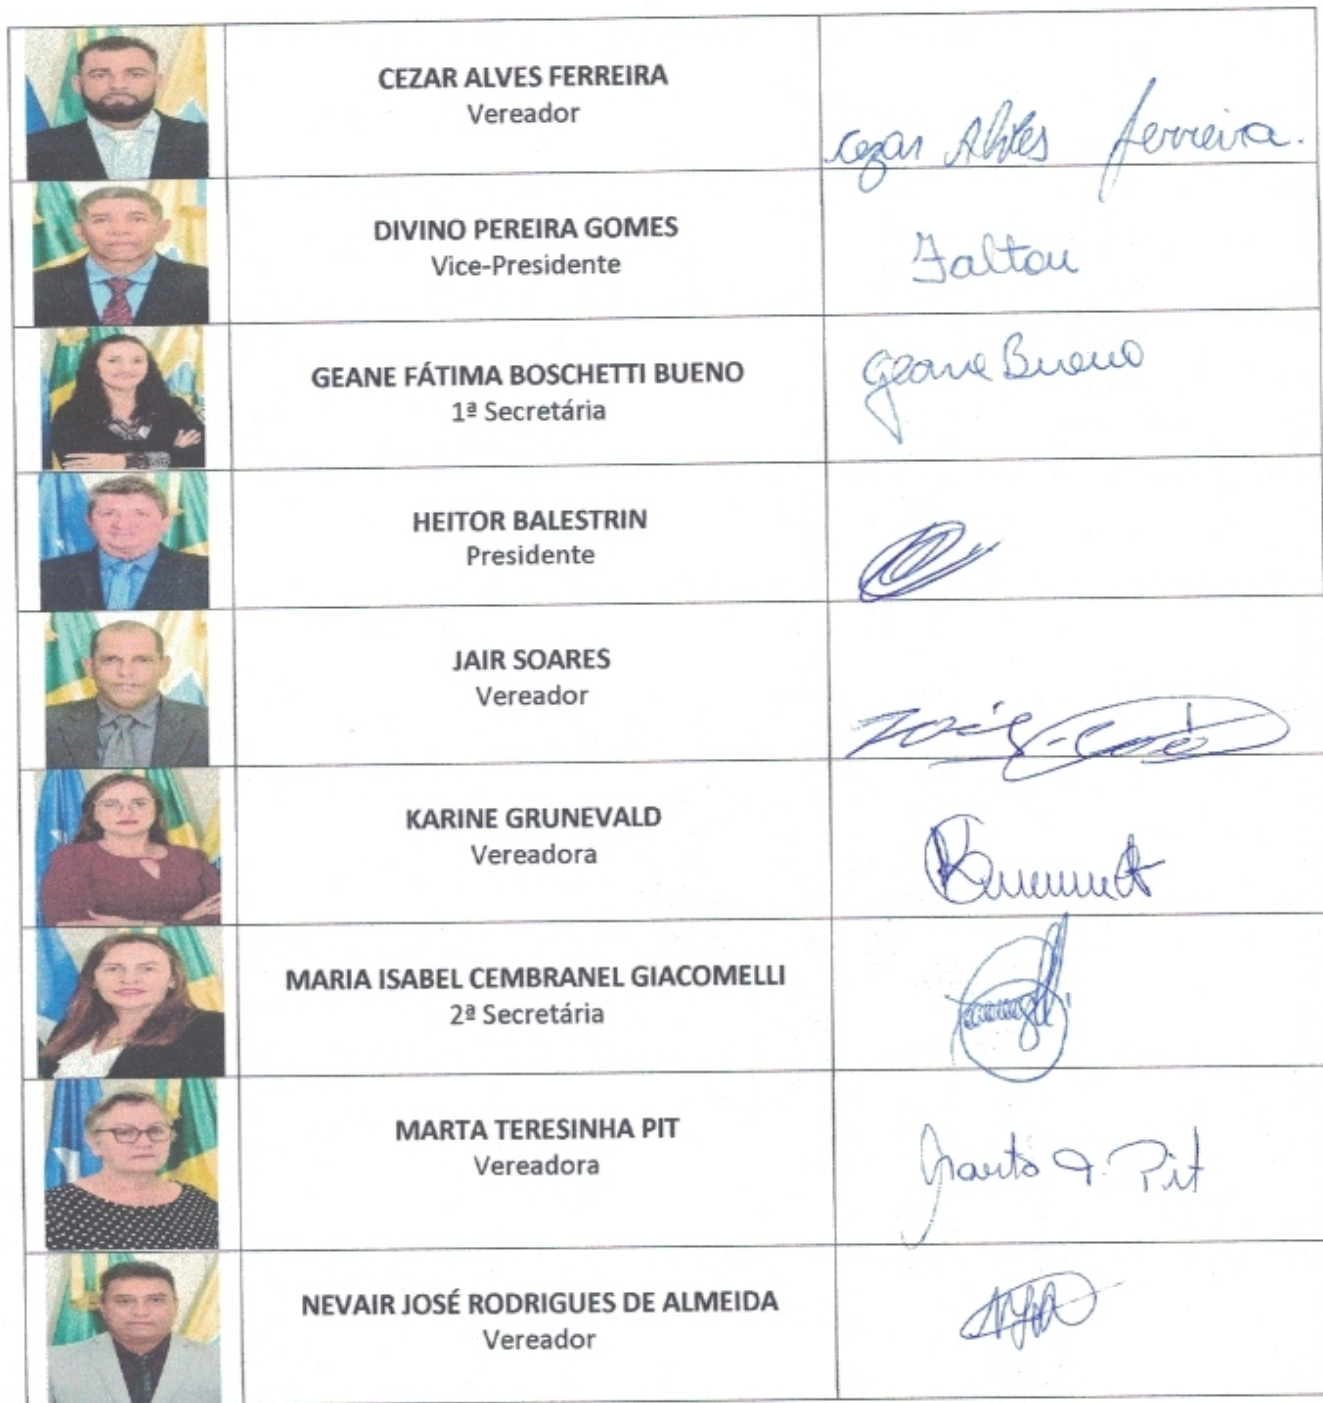 CEZAR ALVES FERREIRA
Vereador
Cezar Alves Ferreira.
DIVINO PEREIRA GOMES
Vice-Presidente
Faltou
GEANE FÁTIMA BOSCHETTI BUENO
1ª Secretária
Geane Bueno
HEITOR BALESTRIN
Presidente
JAIR SOARES
Vereador
KARINE GRUNEVALD
Vereadora
MARIA ISABEL CEMBRANEL GIACOMELLI
2ª Secretária
MARTA TERESINHA PIT
Vereadora
Marta T. Pit
NEVAIR JOSÉ RODRIGUES DE ALMEIDA
Vereador